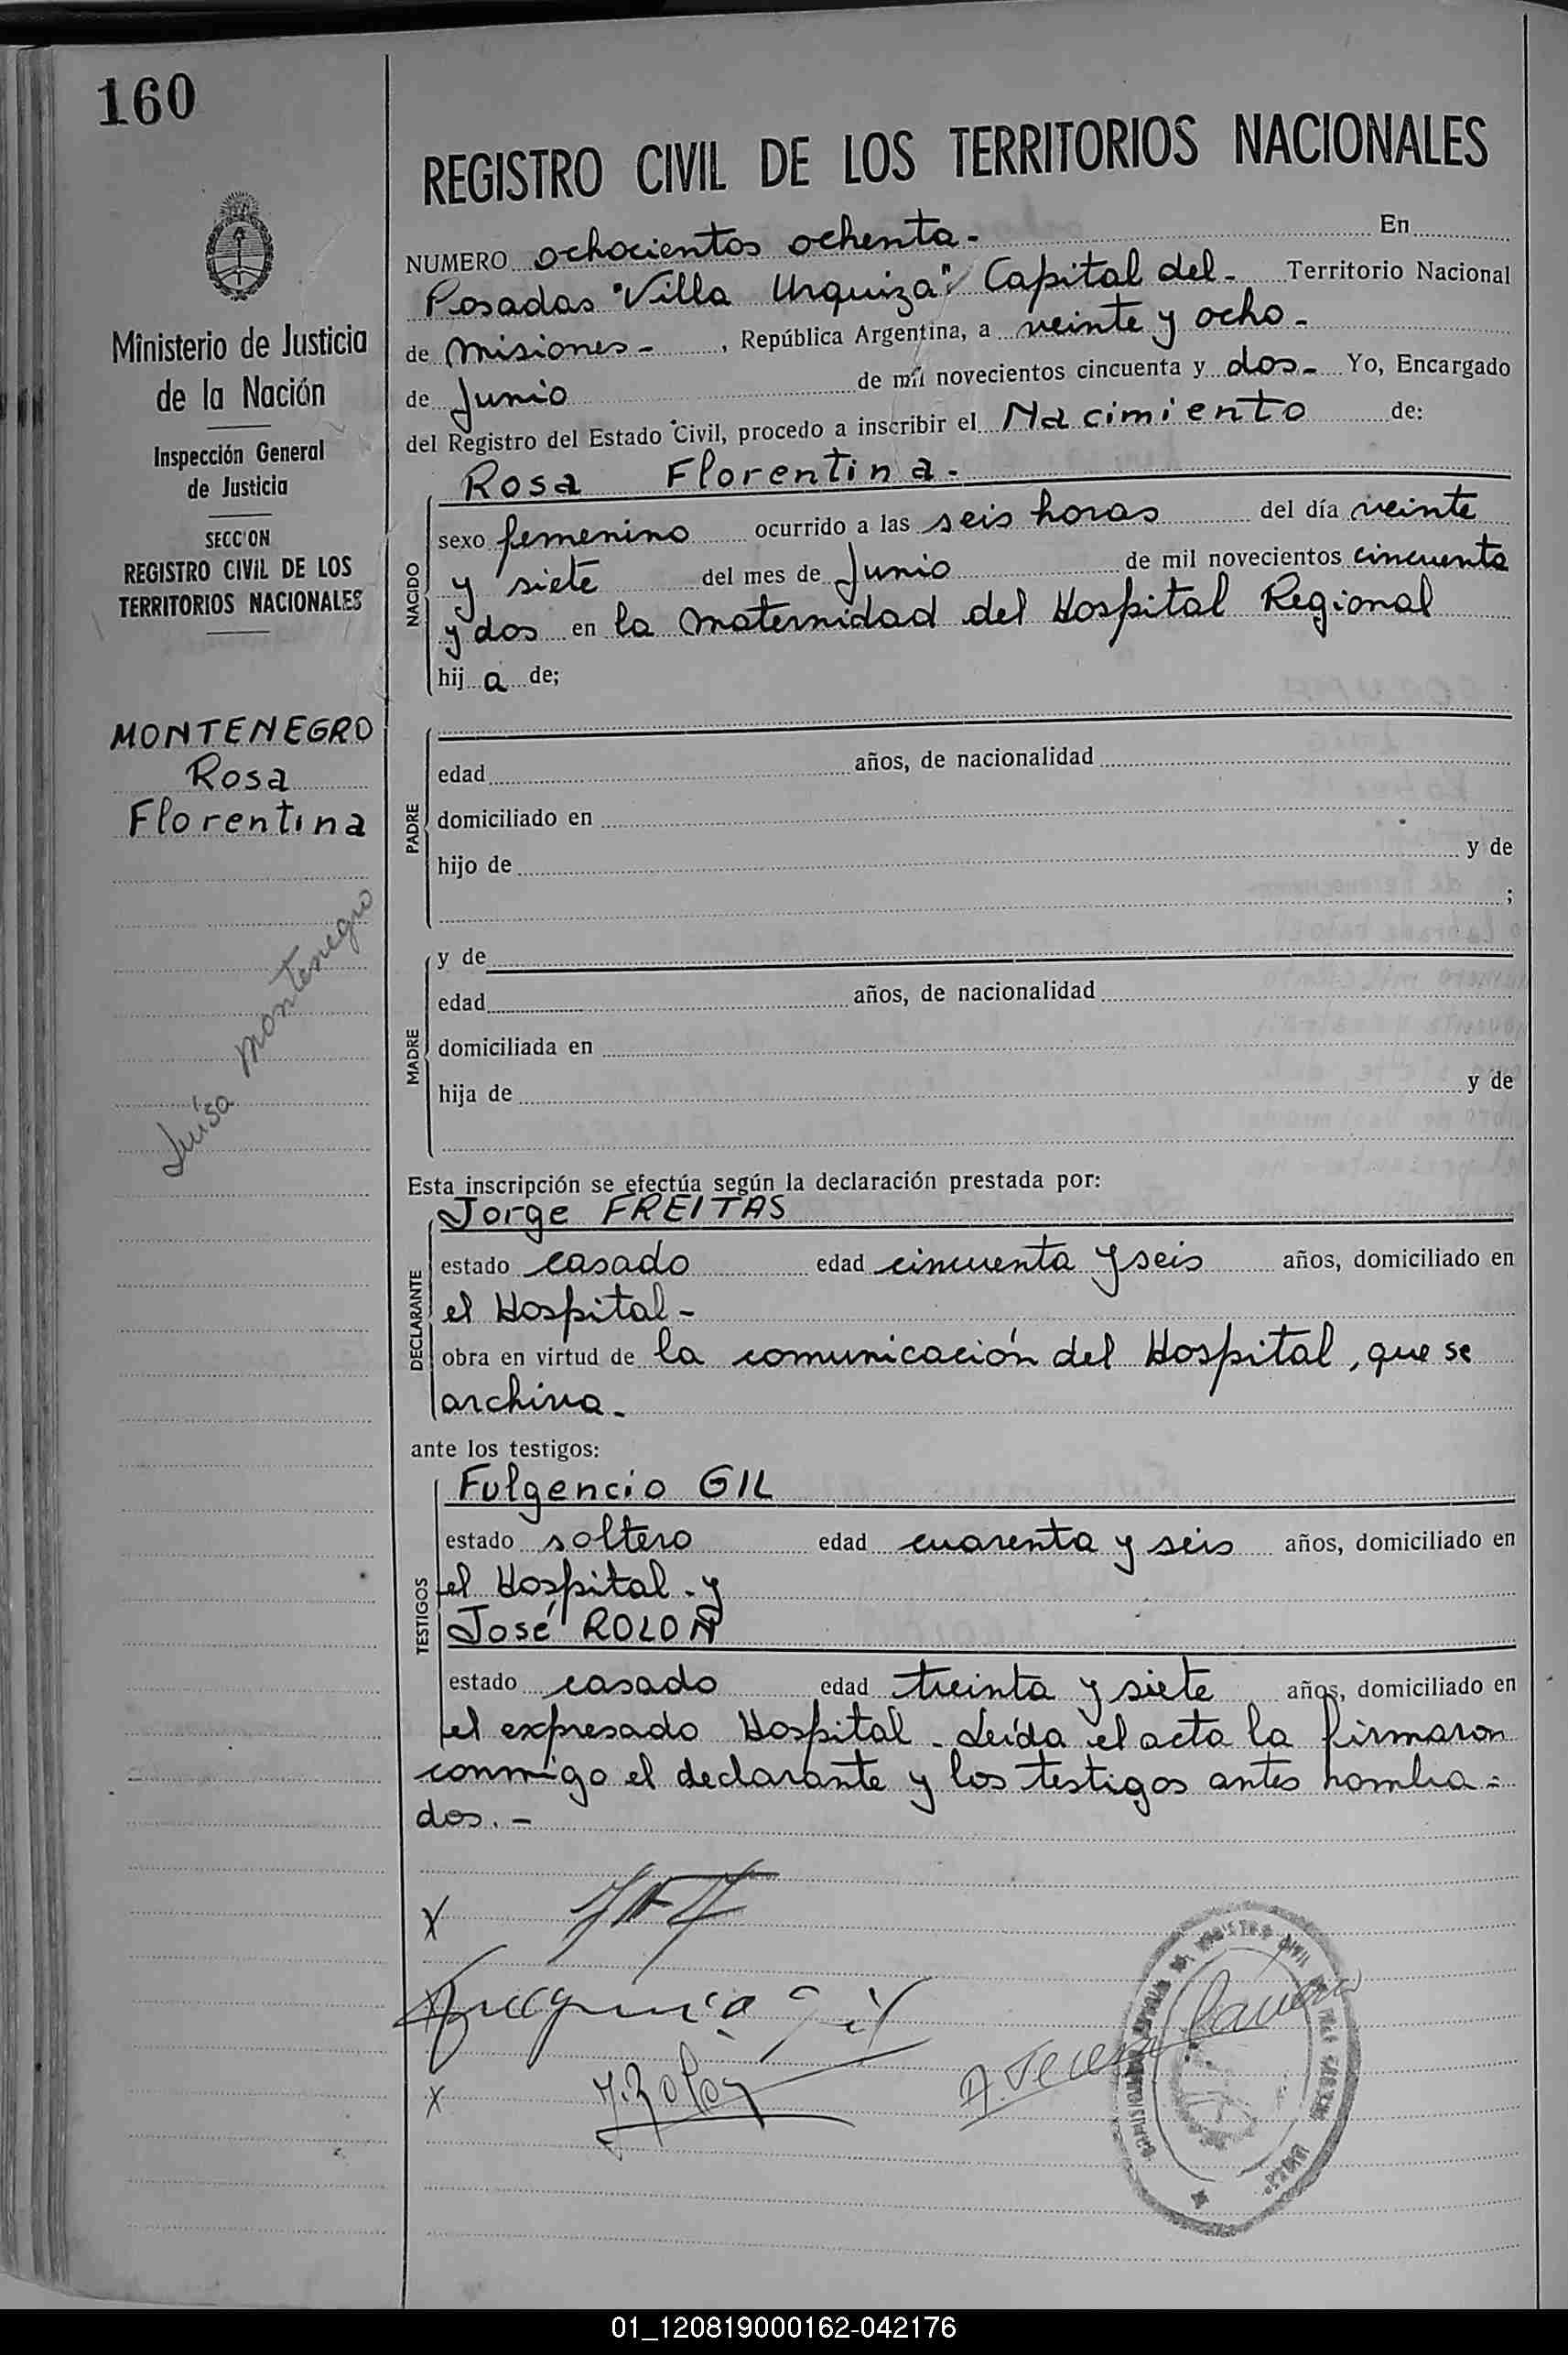 160
Ministerio de Justicia
de la Nación
Inspección General
de Justicia
SECCION
REGISTRO CIVIL DE LOS
TERRITORIOS NACIONALES
MONTENEGRO
Rosa
Florentina
Luisa Montenegro
REGISTRO CIVIL DE LOS TERRITORIOS NACIONALES
NUMERO ochocientos ochenta- En
Posadas "Villa Urquiza" Capital del- Territorio Nacional
de Misiones- , República Argentina, a veinte y ocho-
de Junio de mil novecientos cincuenta y dos- Yo, Encargado
del Registro del Estado Civil, procedo a inscribir el Nacimiento de:
NACIDO
Rosa Florentina-
sexo femenino ocurrido a las seis horas del día veinte
y siete del mes de Junio de mil novecientos cincuenta
y dos en la Maternidad del Hospital Regional
hij a de;
PADRE
edad años, de nacionalidad
domiciliado en
hijo de y de
;
MADRE
y de
edad años, de nacionalidad
domiciliada en
hija de y de
Esta inscripción se efectúa según la declaración prestada por:
DECLARANTE
Jorge FREITAS
estado casado edad cincuenta y seis años, domiciliado en
el Hospital-
obra en virtud de la comunicación del Hospital, que se
archiva-
ante los testigos:
TESTIGOS
Fulgencio GIL
estado soltero edad cuarenta y seis años, domiciliado en
el Hospital-y
José ROLON
estado casado edad treinta y siete años, domiciliado en
el expresado Hospital- Leída el acta la firmaron
conmigo el declarante y los testigos antes nombra=
dos.-
X
Fulgencio Gil
X J. Rolon
01_120819000162-042176